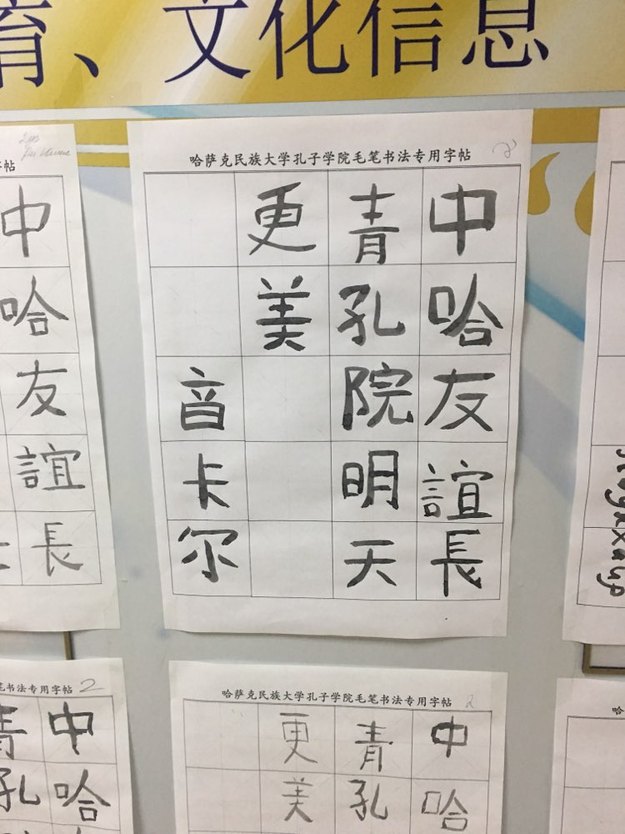 育、文化信息
字帖
中哈友誼長
哈萨克民族大学孔子学院毛笔书法专用字帖
中哈友誼長
青孔院明天
更美
音卡尔
笔书法专用字帖 2
中哈
青孔
哈萨克民族大学孔子学院毛笔书法专用字帖
中哈
青孔
更美
哈